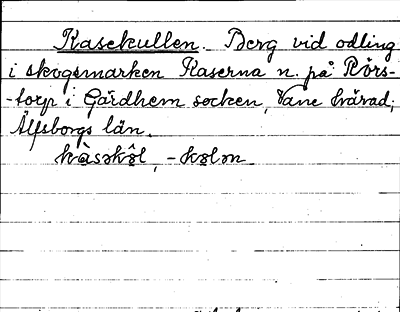 Kasekullen. Berg vid odling
i skogsmarken Kaserna n. på Rörs-
-torp i Gärdhem socken, Väne härad,
Älfsborgs län.
kàsək̂əl, -kələn.